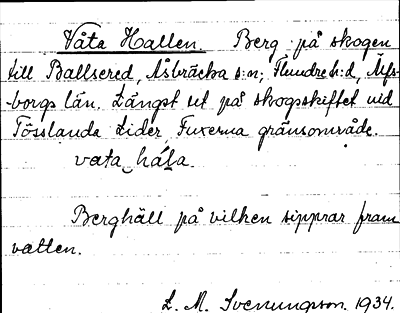 Våta Hallen. Berg på skogen
till Ballsered, Åsbräcka s:n; Flundre h:d, Älfs-
borgs län. Längst ut på skogsskiftet vid
Tösslanda Lider, Fuxerna gränsområde.
vata hála.
Berghäll på vilken sipprar fram
vatten.
L. M. Svenungsson. 1934.